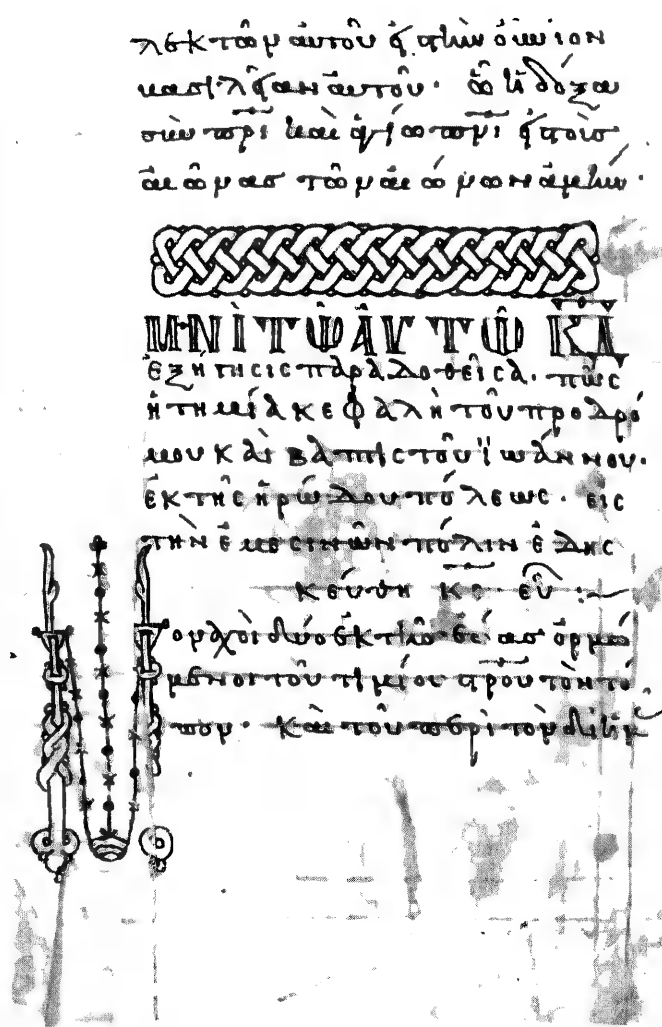 λεκτῶν αὐτοῦ ϗ τὴν αἰώνιον
βασιλείαν αὐτοῦ· ᾧ ἡ δόξα
σὺν πρὶ καὶ ἁγίω πνι
αἰῶνας τῶν αἰώνων ἀμήν·
ΜΝΙ ΤΩ ΑΥΤΩ ΚΔ
ἐξήτησις παραδοθεῖσα· πῶς
ἡ τημία κεφαλὴ τοῦ προδρό
μου καὶ βαπτιστοῦ ϊωάννου·
ἐκ τῆς ἡρώδου πόλεως· εἰς
τὴν ἐμεσινῶν πόλιν ἐδης
κεύθη
Μοναχοὶ δύο ἐκ τῆς ὁρμώ
μενοι τοῦ τιμίου σροῦ τὸν τό
πον· Καὶ τοῦ περὶ τὸν